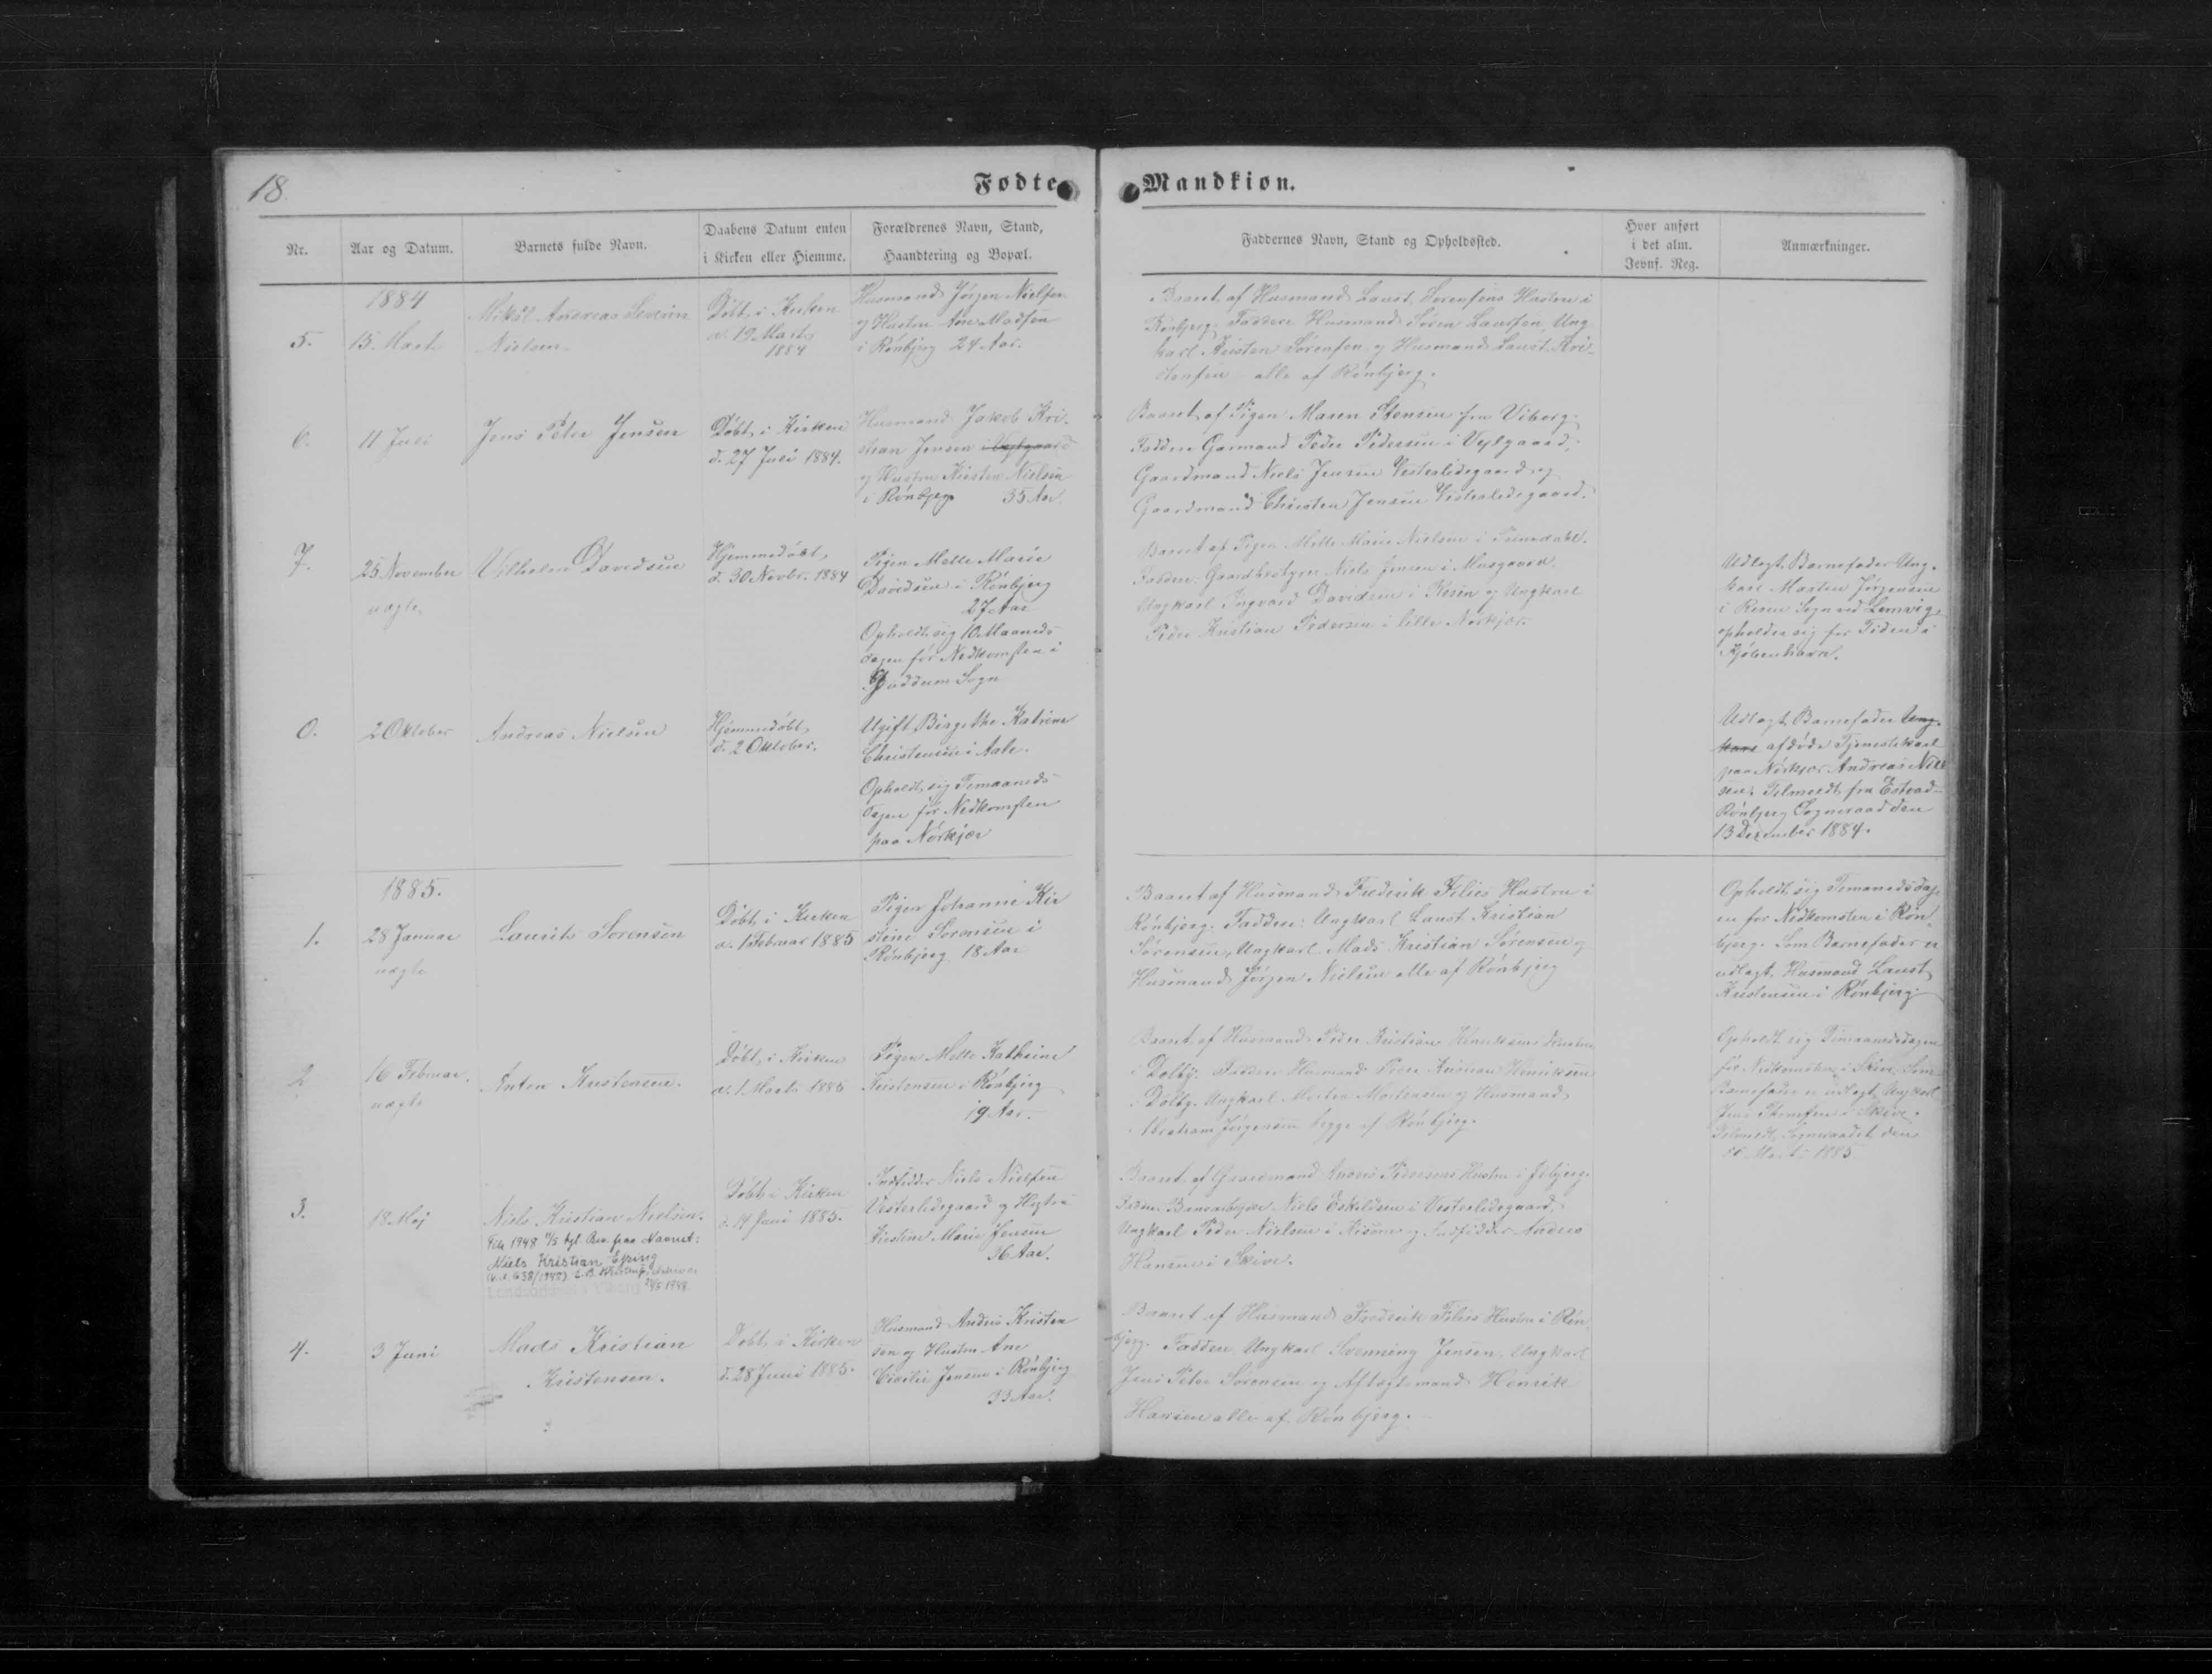 18.
Fødte
Mandkiøn.
Nr.
Aar og Datum.
Barnets fulde Navn.
Daabens Datum enten
i Kirken eller Hiemme.
Forældrenes Navn, Stand,
Haandtering og Bopæl.
Faddernes Navn, Stand og Opholdssted.
Hvor anført
i det alm.
Jevnf. Reg.
Anmærkninger.
1884
5.
15. Mart.
Mikál Andreas Severin
Nielsen
Døbt i Kirken
d. 19 Marts
1884
Husmand Jörgen Nielsen
og Hustru Ane Madsen
i Rönbjerg 24 Aar.
Baaret af Husmand Laust Sørensens Hustru i
Rönbjerg. Faddere Husmand Sören Laustsen, Ung
karl Kristen Sørensen og Husmand Laust Kri-
stensen alle af Rönbjerg.
6.
11 Juli
Jens Peter Jensen
Døbt i Kirken
d. 27 Juli 1884.
Husmand Jakob Kri-
stian Jensen i Vejlgaard
og Hustru Kirsten Nielsen
i Rönbjerg 35 Aar.
Baaret af Pigen Maren Stensen fra Viborg.
Faddere Garmand Peder Pedersen i Vejlgaard,
Gaardmand Niels Jensen Vesterlidegaard og
Gaardmand Christen Jensen Vesterlidegaard.
7.
25 November
uægte
Vilhelm Davidsen
Hjemmedöbt
d. 30 Novbr. 1884
Pigen Mette Marie
Davidsen i Rönbjerg
27 Aar
Opholdt sig 10 Maaneds
dagen før Nedkomsten i
Spöttrup Sogn
Baaret af Pigen Mette Marie Nielsen i
Faddere: Gaardbestyrer Niels Jensen i Musgaard
Ungkarl Ingvard Davidsen i Resen og Ungkarl
Peder Kristian Pedersen i lille Nørkjær.
Udlagt Barnefader Ung-
karl Martin Jörgensen
i Resen Sogn ved Lemvig,
opholder sig for Tiden i
Kjøbenhavn.
0.
2 Oktober
Andreas Nielsen
Hjemmedöbt
d. 2 Oktober.
Ugift Birgethe Katrine
Christensen i Aale.
Opholdt sig Timaaneds
dagen før Nedkomsten
paa Nörkjær
Udlagt Barnefader Ung-
karl afdøde Tjenestekarl
paa Nörkjær Andreas Niel-
sen. Tilmeldt fra Estvad-
Rönbjerg Sogneraad den
13 December 1884.
1885.
1.
28 Januar
uægte
Laurits Sørensen
Døbt i Kirken
d. 1 Februar 1885
Pigen Johanne Kir
stine Sørensen i
Rönbjerg 18 Aar
Baaret af Husmand Frederik Filies Hustru i
Rönbjerg. Faddere: Ungkarl Laust Kristian
Sørensen, Ungkarl Mads Kristian Sørensen og
Husmand Jörgen Nielsen alle af Rönbjerg
Opholdt sig Timaanedsdag-
en før Nedkomsten i Rön
bjerg. Som Barnefader er
udlagt Husmand Laust
Kristensen i Rönbjerg
2
16 Februar.
uægte
Anton Kristensen.
Døbt i Kirken
d. 1 Marts 1885
Pigen Mette Kathrine
Kristensen i Rönbjerg
19 Aar.
Baaret af Husmand Peder Kristian Henriksens Hustru
i Dølby. Faddere Husmand Peder Kristian Henriksen
i Dølby. Ungkarl Morten Mortensen og Husmand
Abraham Jörgensen begge af Rönbjerg.
Opholdt sig Timaanedsdagen
før Nedkomsten i Skive. Som
Barnefader er udlagt Ungkarl
Jens i Skive.
Tilmeldt Sogneraadet den
Marts 1885
3.
18 Maj
Niels Kristian Nielsen.
Niels Kristian Ejsing
Døbt i Kirken
d. 14 Juni 1885.
Indsidder Niels Nielsen
Vesterlidegaard og Hustru
Kirstine Marie Jensen
36 Aar.
Baaret af Gaardmand Anders Pedersens Hustru i Jebjerg.
Faddere Banearbejder Niels Eskildsen i Vesterlidegaard,
Ungkarl Peder Nielsen i og Indsidder Anders
Hansen i Skive.
4.
3 Juni
Mads Kristian
Kristensen.
Døbt i Kirken
d. 28 Juni 1885.
Husmand Anders Kristen
sen og Hustru Ane
Cicilie Jensen i Rönbjerg
33 Aar.
Baaret af Husmand Frederik Filies Hustru i Rön
bjerg. Faddere Ungkarl Svenning Jensen, Ungkarl
Jens Peter Sørensen og Aftægtsmand Henrik
Hansen alle af Rönbjerg.